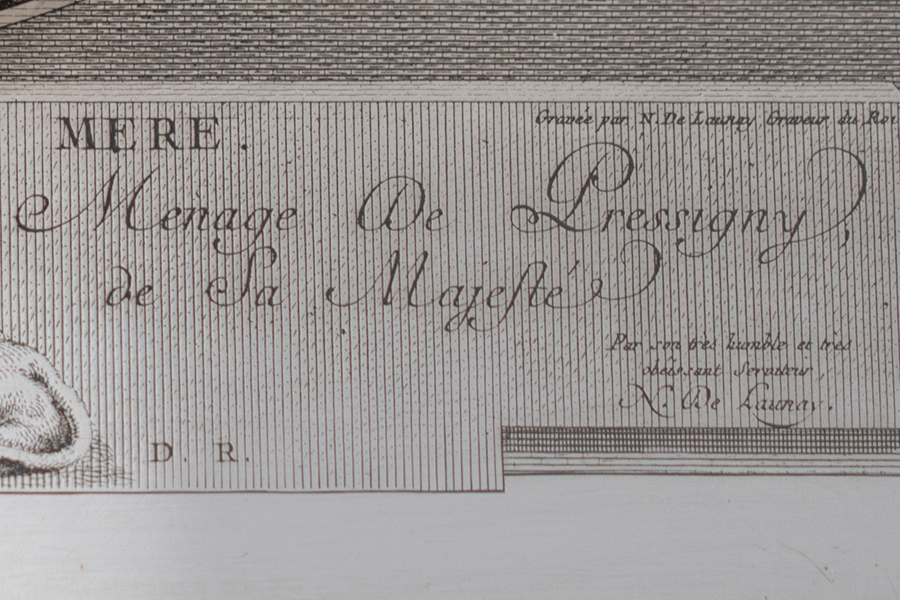 Gravée par N. De Launay Graveur du Roi
MERE.
Menage De Pressigny,
de Sa Majesté
Par son très humble et très
obéissant Serviteur
N. De Launay.
D. R.